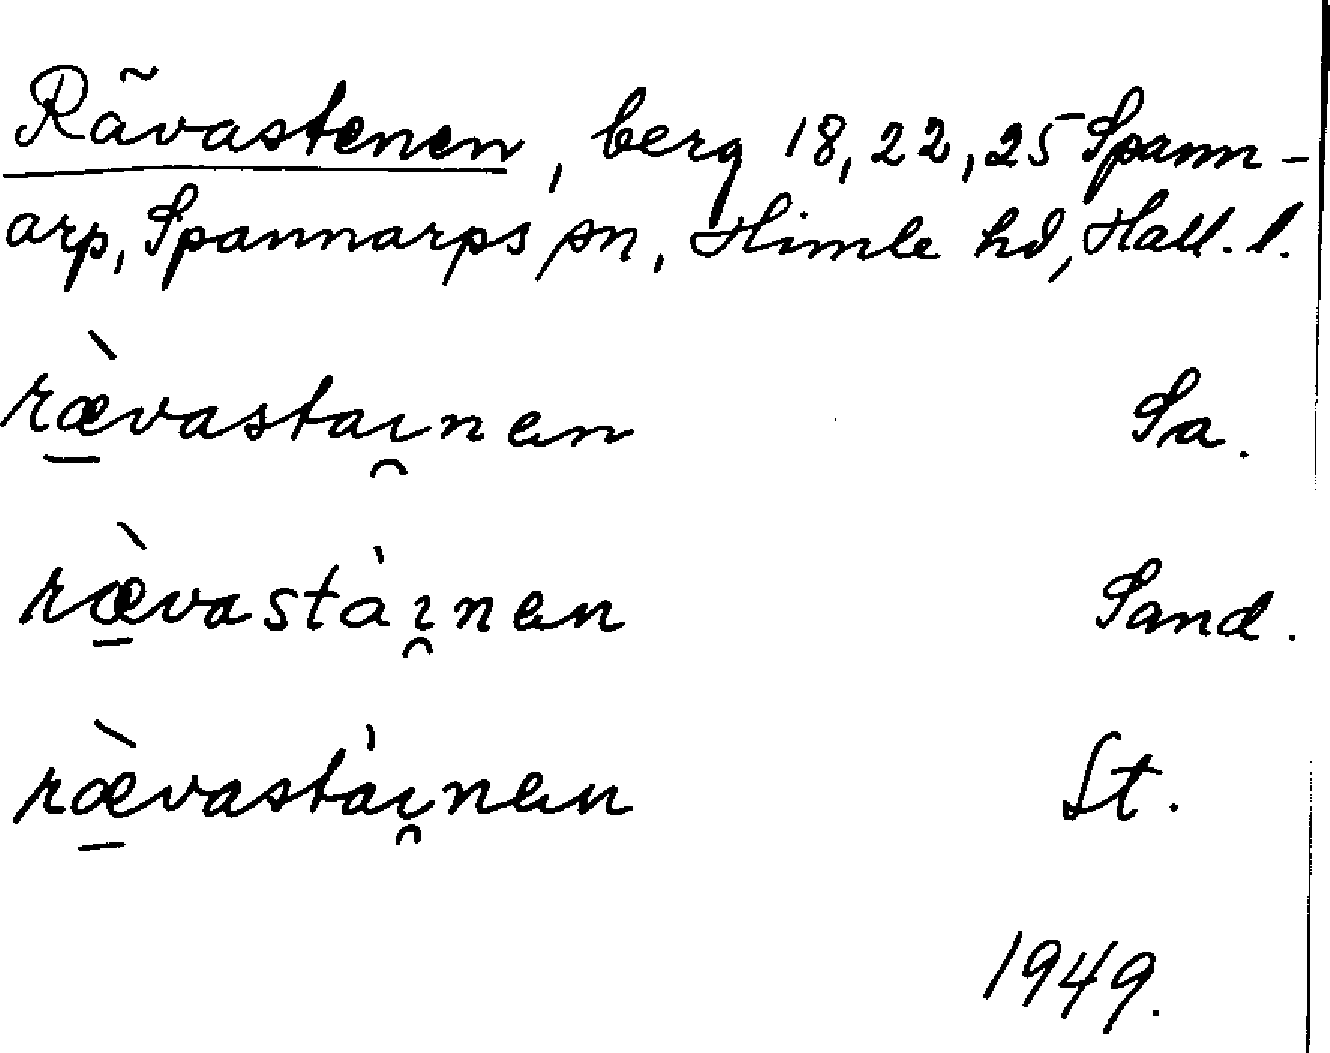 Rävastenen, berg 18, 22, 25 Spann-
arp, Spannarps sn, Himle hd, Hall. l.
ræ̠̀vastaı̯nen Sa.
ræ̠̀vastàı̯nen Sand.
ræ̠̀vastàı̯nen St.
1949.